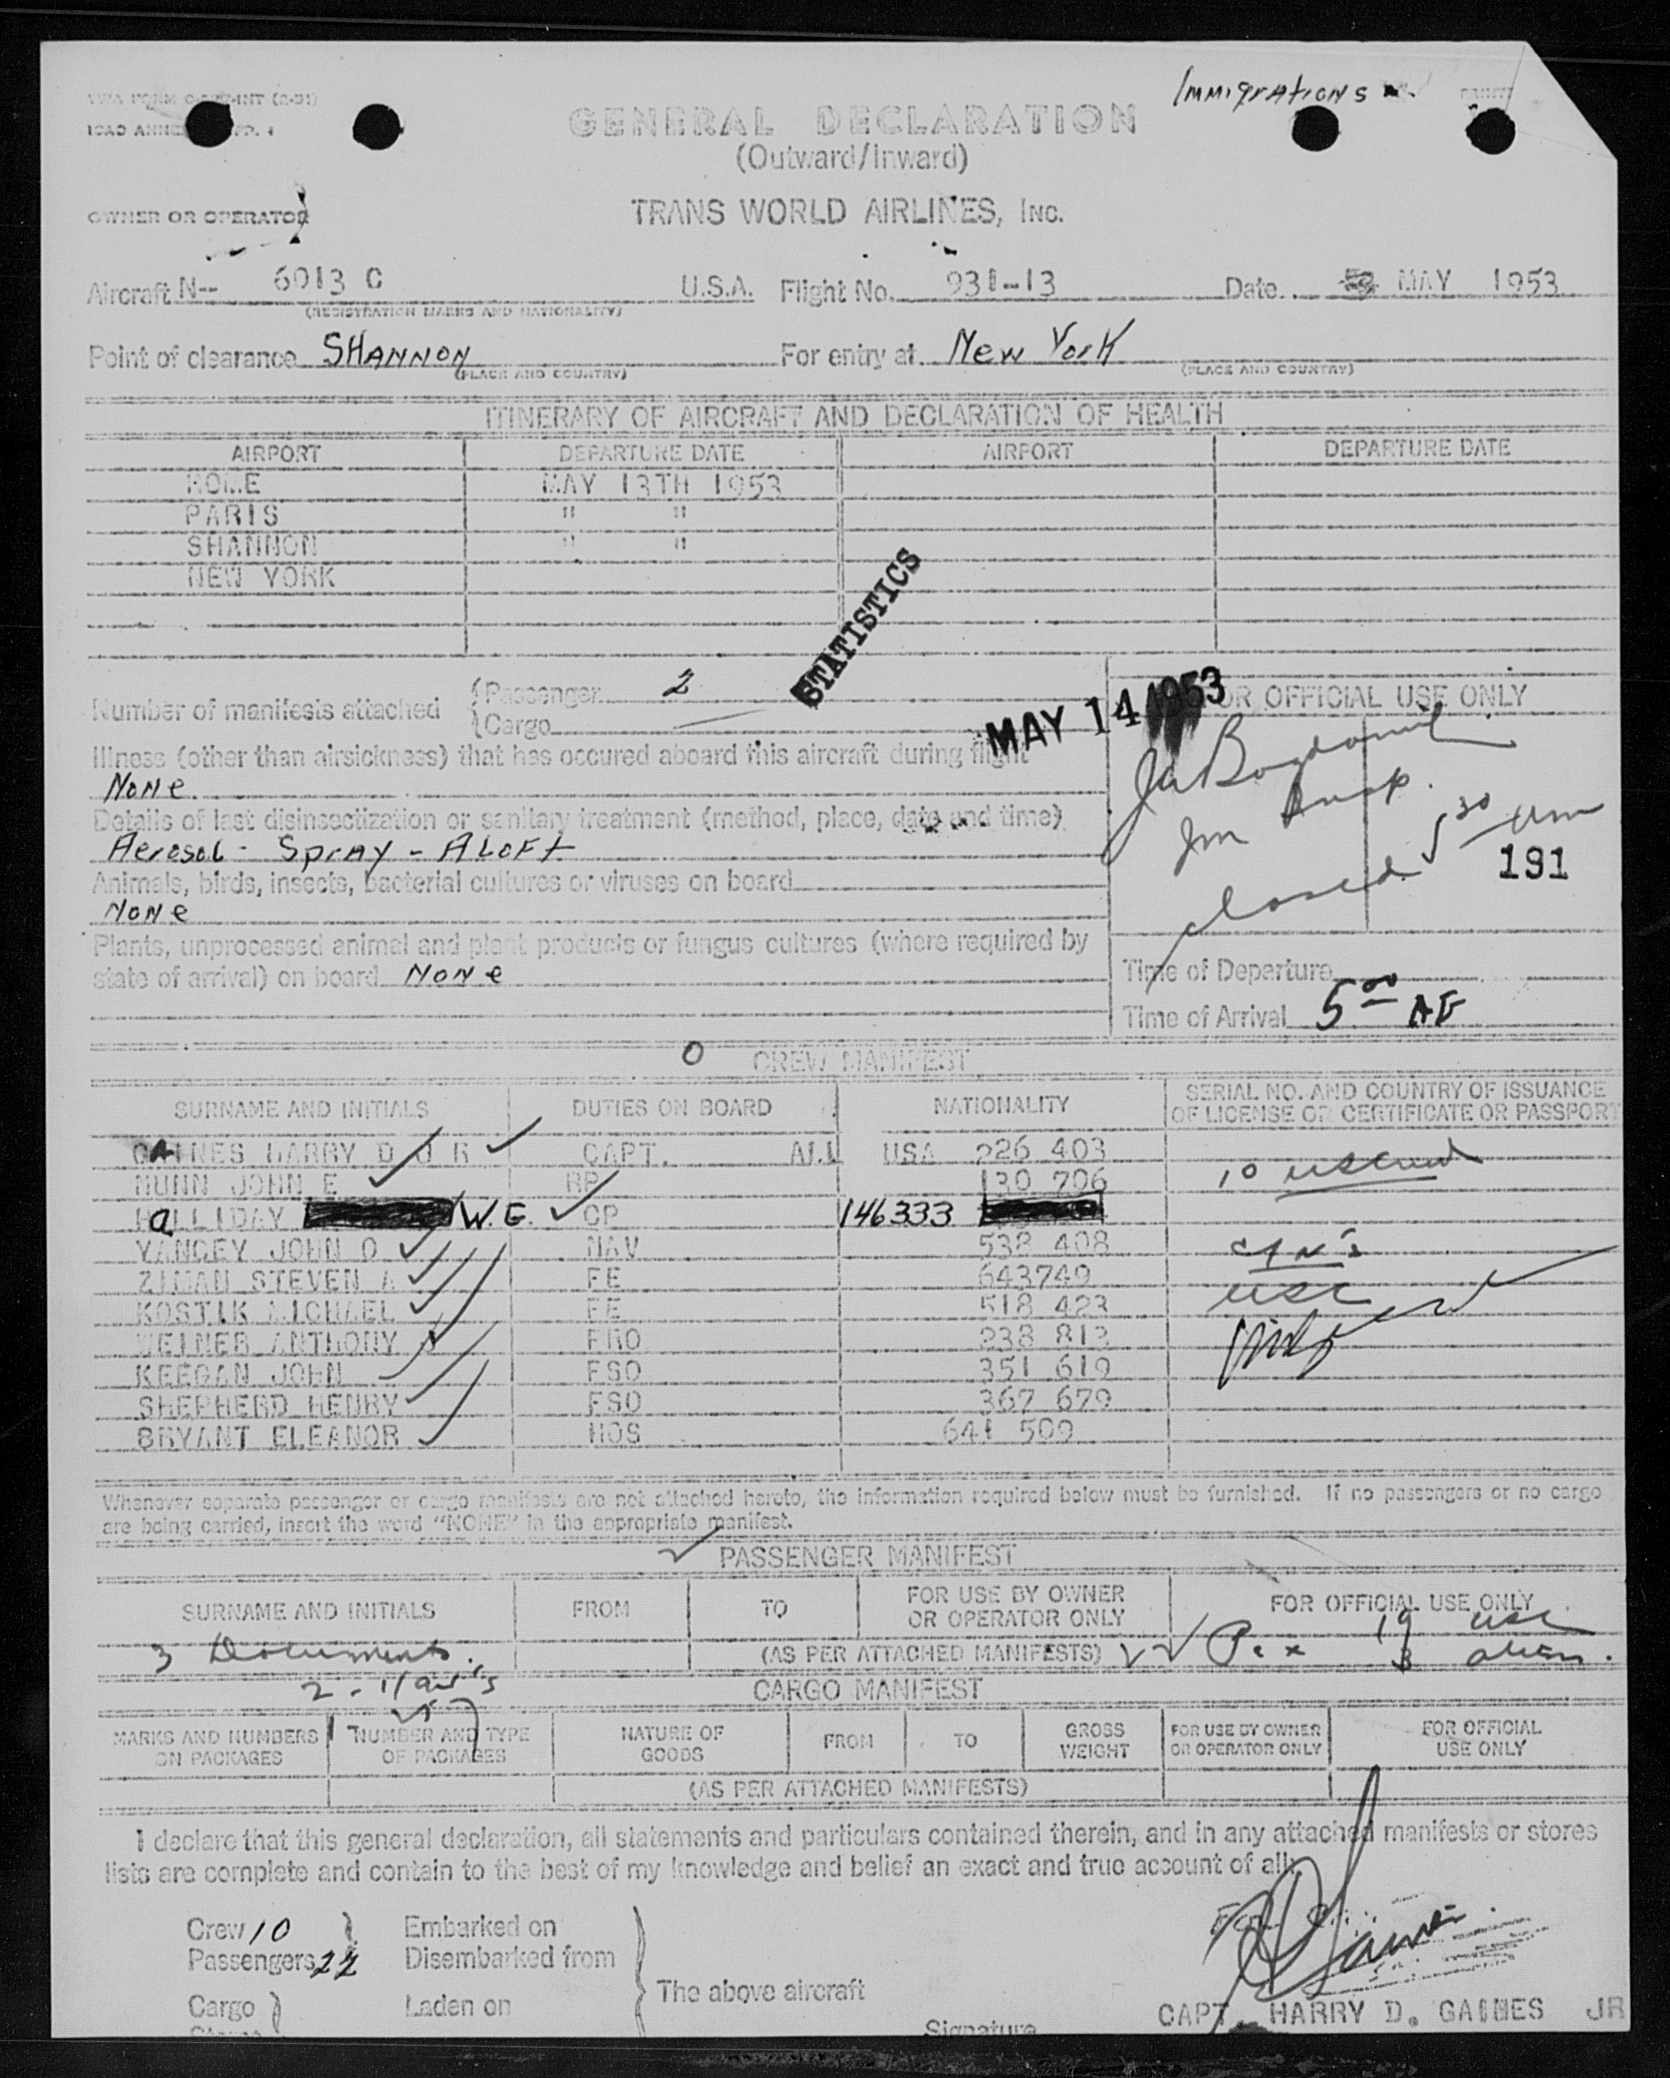 Immigrations
ICAO ANNE
GENERAL DECLARATION
(Outward/Inward)
OWNER OR OPERATOR
TRANS WORLD AIRLINES, INC.
Aircraft N-- 6013 C U.S.A. Flight No. 931-13 Date MAY 1953
(REGISTRATION MARKS AND NATIONALITY)
Point of clearance SHANNON For entry at New York
(PLACE AND COUNTRY) (PLACE AND COUNTRY)
ITINERARY OF AIRCRAFT AND DECLARATION OF HEALTH
AIRPORT DEPARTURE DATE AIRPORT DEPARTURE DATE
ROME MAY 13TH 1953
PARIS " "
SHANNON " "
NEW YORK
STATISTICS
Number of manifests attached { Passenger 2
{ Cargo
MAY 14 1953
FOR OFFICIAL USE ONLY
Illness (other than airsickness) that has occured aboard this aircraft during flight
None
Details of last disinsectization or sanitary treatment (method, place, date and time)
Aerosol - Spray - Aloft
closed 5 30
191
Animals, birds, insects, bacterial cultures or viruses on board
None
Plants, unprocessed animal and plant products or fungus cultures (where required by
state of arrival) on board None
Time of Departure
Time of Arrival 5 00 AF
0 CREW MANIFEST
SURNAME AND INITIALS DUTIES ON BOARD NATIONALITY SERIAL NO. AND COUNTRY OF ISSUANCE
OF LICENSE OR CERTIFICATE OR PASSPORT
GAINES HARRY D J R CAPT. ALL USA 226 403
NUNN JOHN E RP 130 706
HALLIDAY W. E. CP 146333
YANCEY JOHN O NAV 538 408
ZIMAN STEVEN A FE 643749
KOSTIK MICHAEL FE 518 423
WEINER ANTHONY N FRO 238 813
KEEGAN JOHN FSO 351 619
SHEPHERD HENRY FSO 367 679
BRYANT ELEANOR HOS 641 509
10
USC
Whenever separate passenger or cargo manifests are not attached hereto, the information required below must be furnished. If no passengers or no cargo
are being carried, insert the word "NONE" in the appropriate manifest.
PASSENGER MANIFEST
SURNAME AND INITIALS FROM TO FOR USE BY OWNER
OR OPERATOR ONLY FOR OFFICIAL USE ONLY
3 Documents. (AS PER ATTACHED MANIFESTS) Pax 19 USC
3 alien.
CARGO MANIFEST
MARKS AND NUMBERS
ON PACKAGES NUMBER AND TYPE
OF PACKAGES NATURE OF
GOODS FROM TO GROSS
WEIGHT FOR USE BY OWNER
OR OPERATOR ONLY FOR OFFICIAL
USE ONLY
(AS PER ATTACHED MANIFESTS)
I declare that this general declaration, all statements and particulars contained therein, and in any attached manifests or stores
lists are complete and contain to the best of my knowledge and belief an exact and true account of all:
Crew 10 } Embarked on
Passengers 22 Disembarked from
The above aircraft
Cargo } Laden on
Signature CAPT. HARRY D. GAINES JR